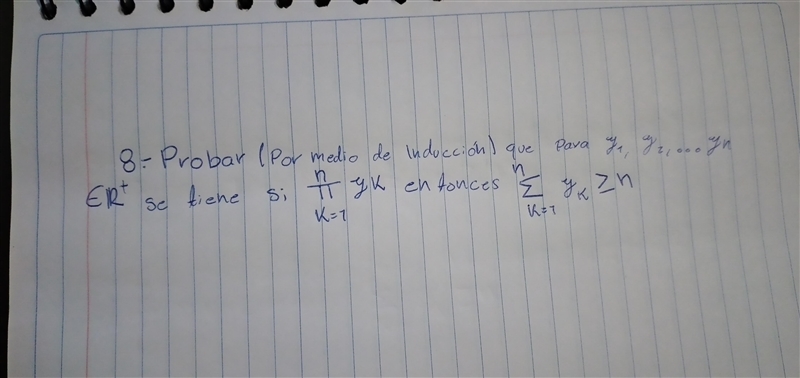 8.- Probar (Por medio de Inducción) que para y₁, y₂, ... yn
∈ℝ⁺ se tiene si ∏_{K=1}^{n} yK entonces ∑_{K=1}^{n} y_K ≥ n